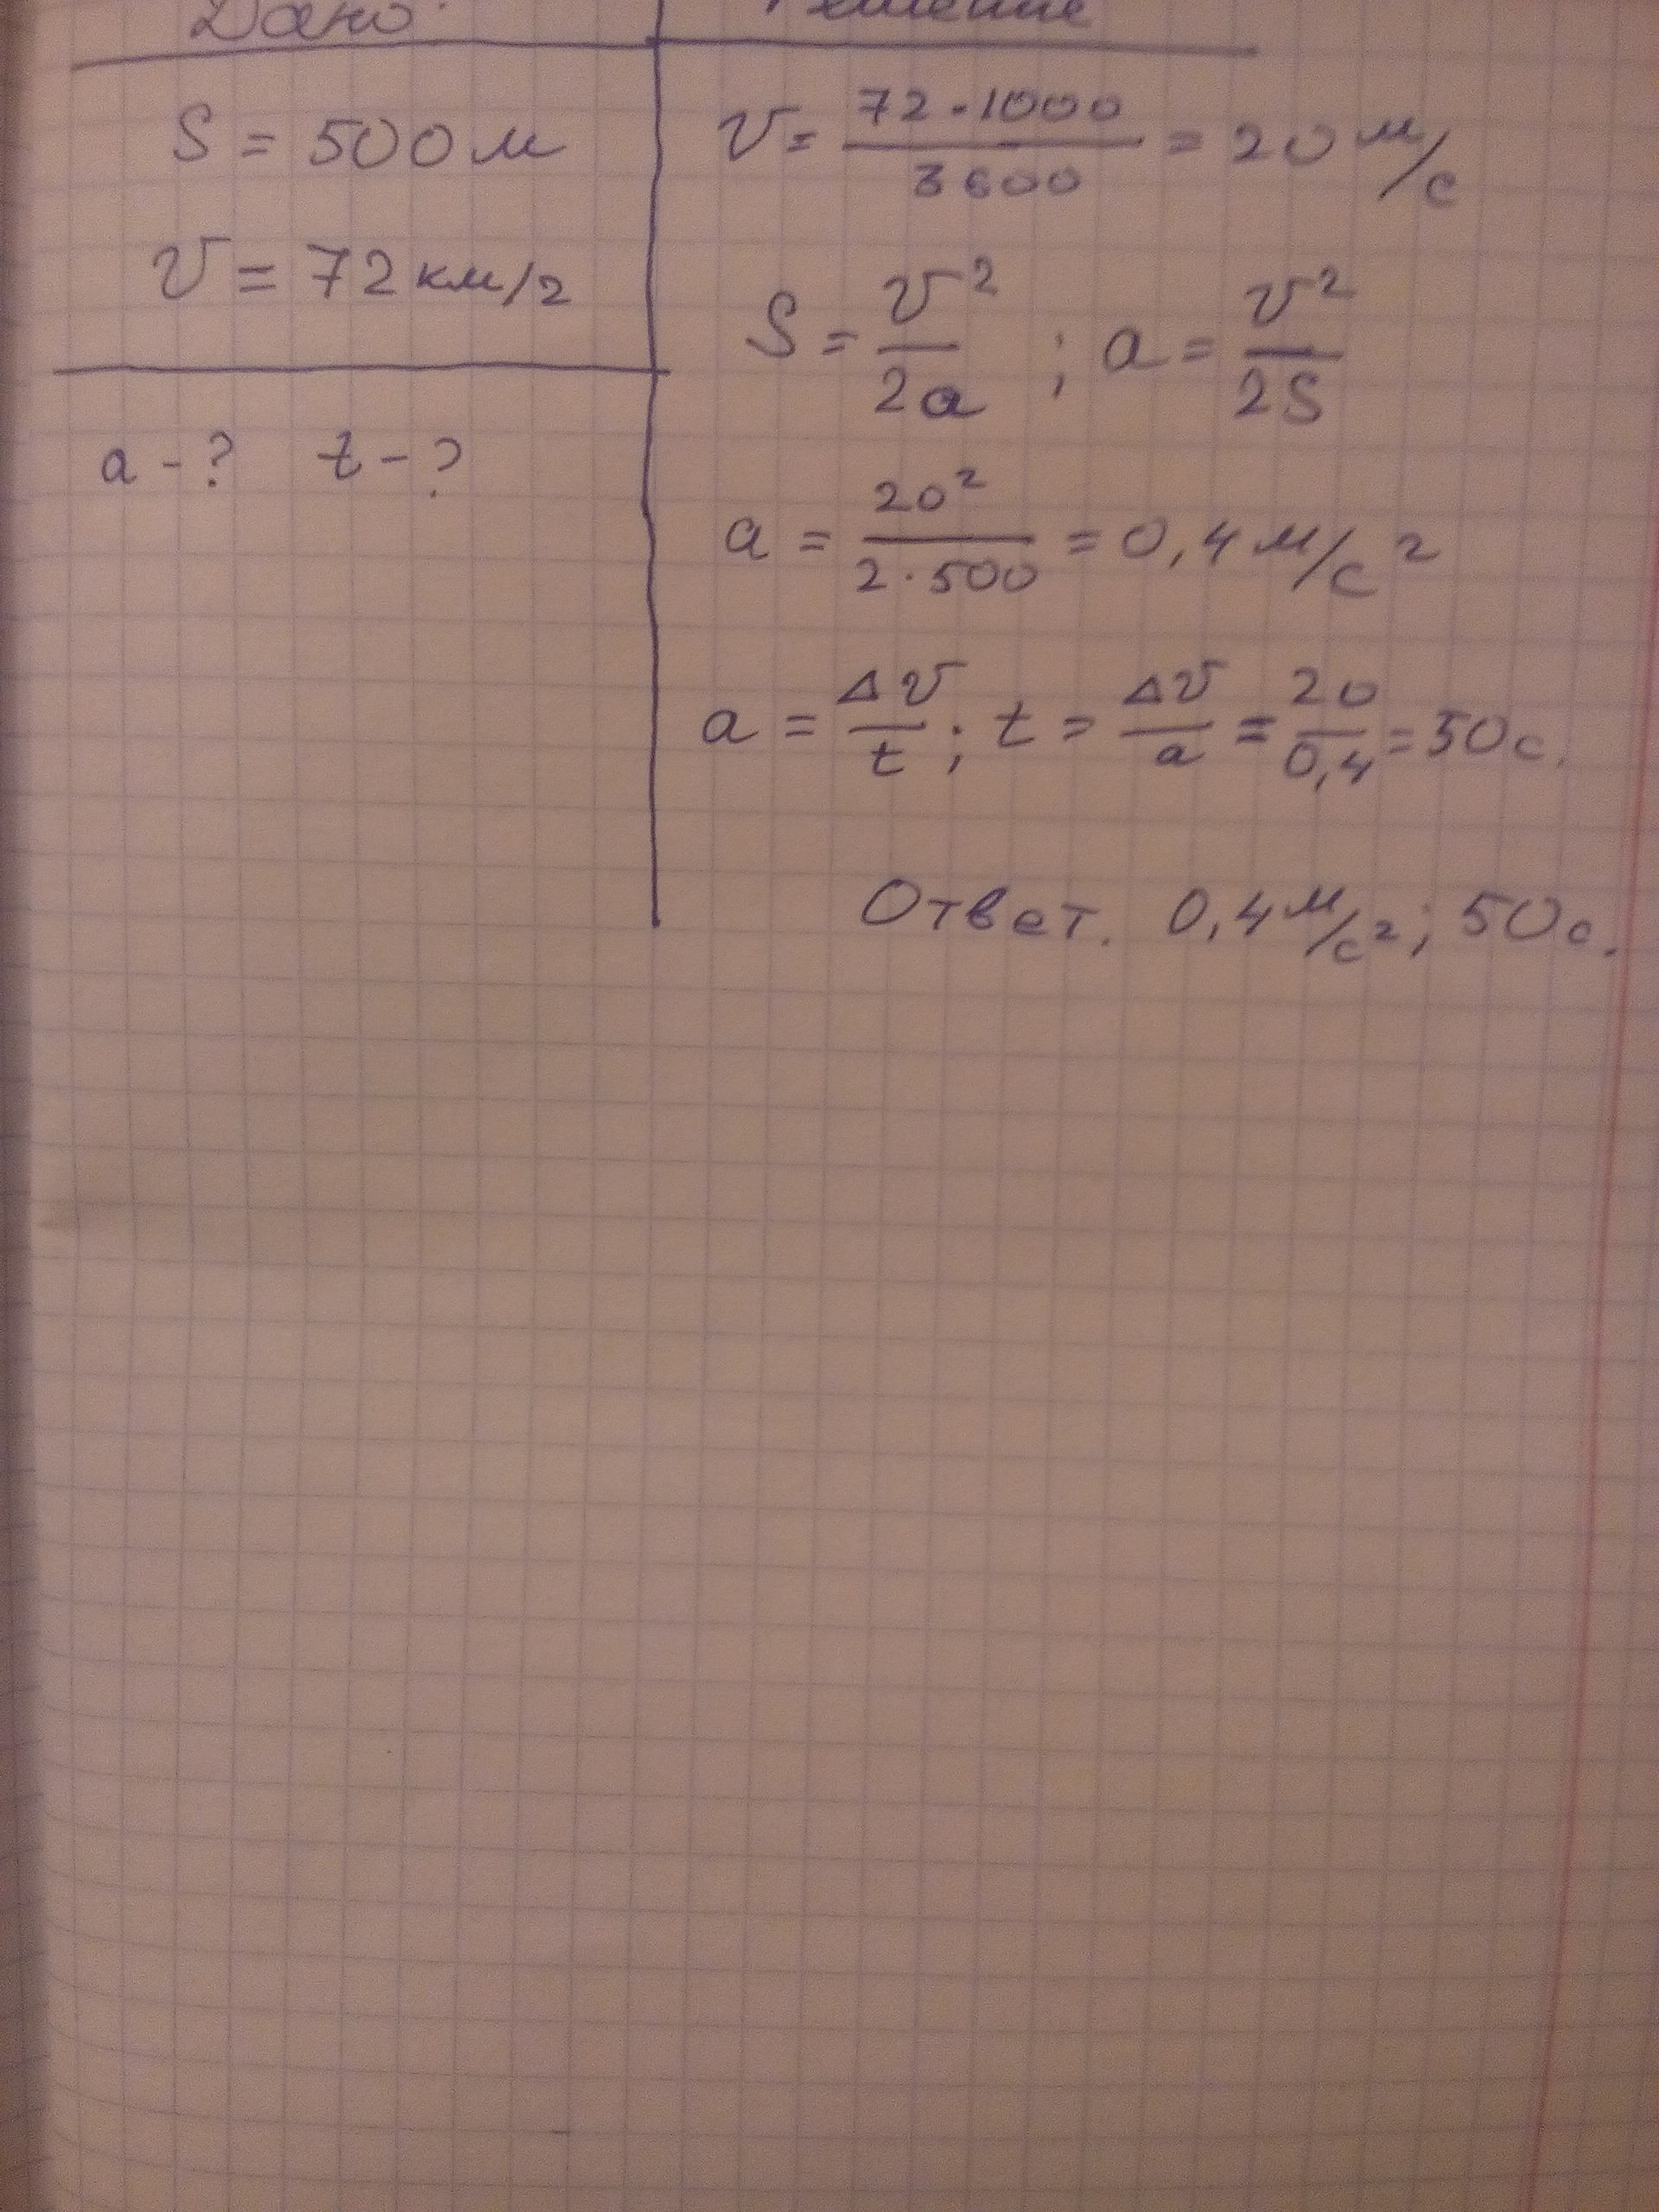 Дано:
Решение
S = 500 м
v = 72 км/г
a - ? t - ?
v = 72·1000/3600 = 20 м/с
S = v²/2a ; a = v²/2S
a = 20²/2·500 = 0,4 м/с²
a = Δv/t ; t = Δv/a = 20/0,4 = 50 с.
Ответ. 0,4 м/с²; 50 с.